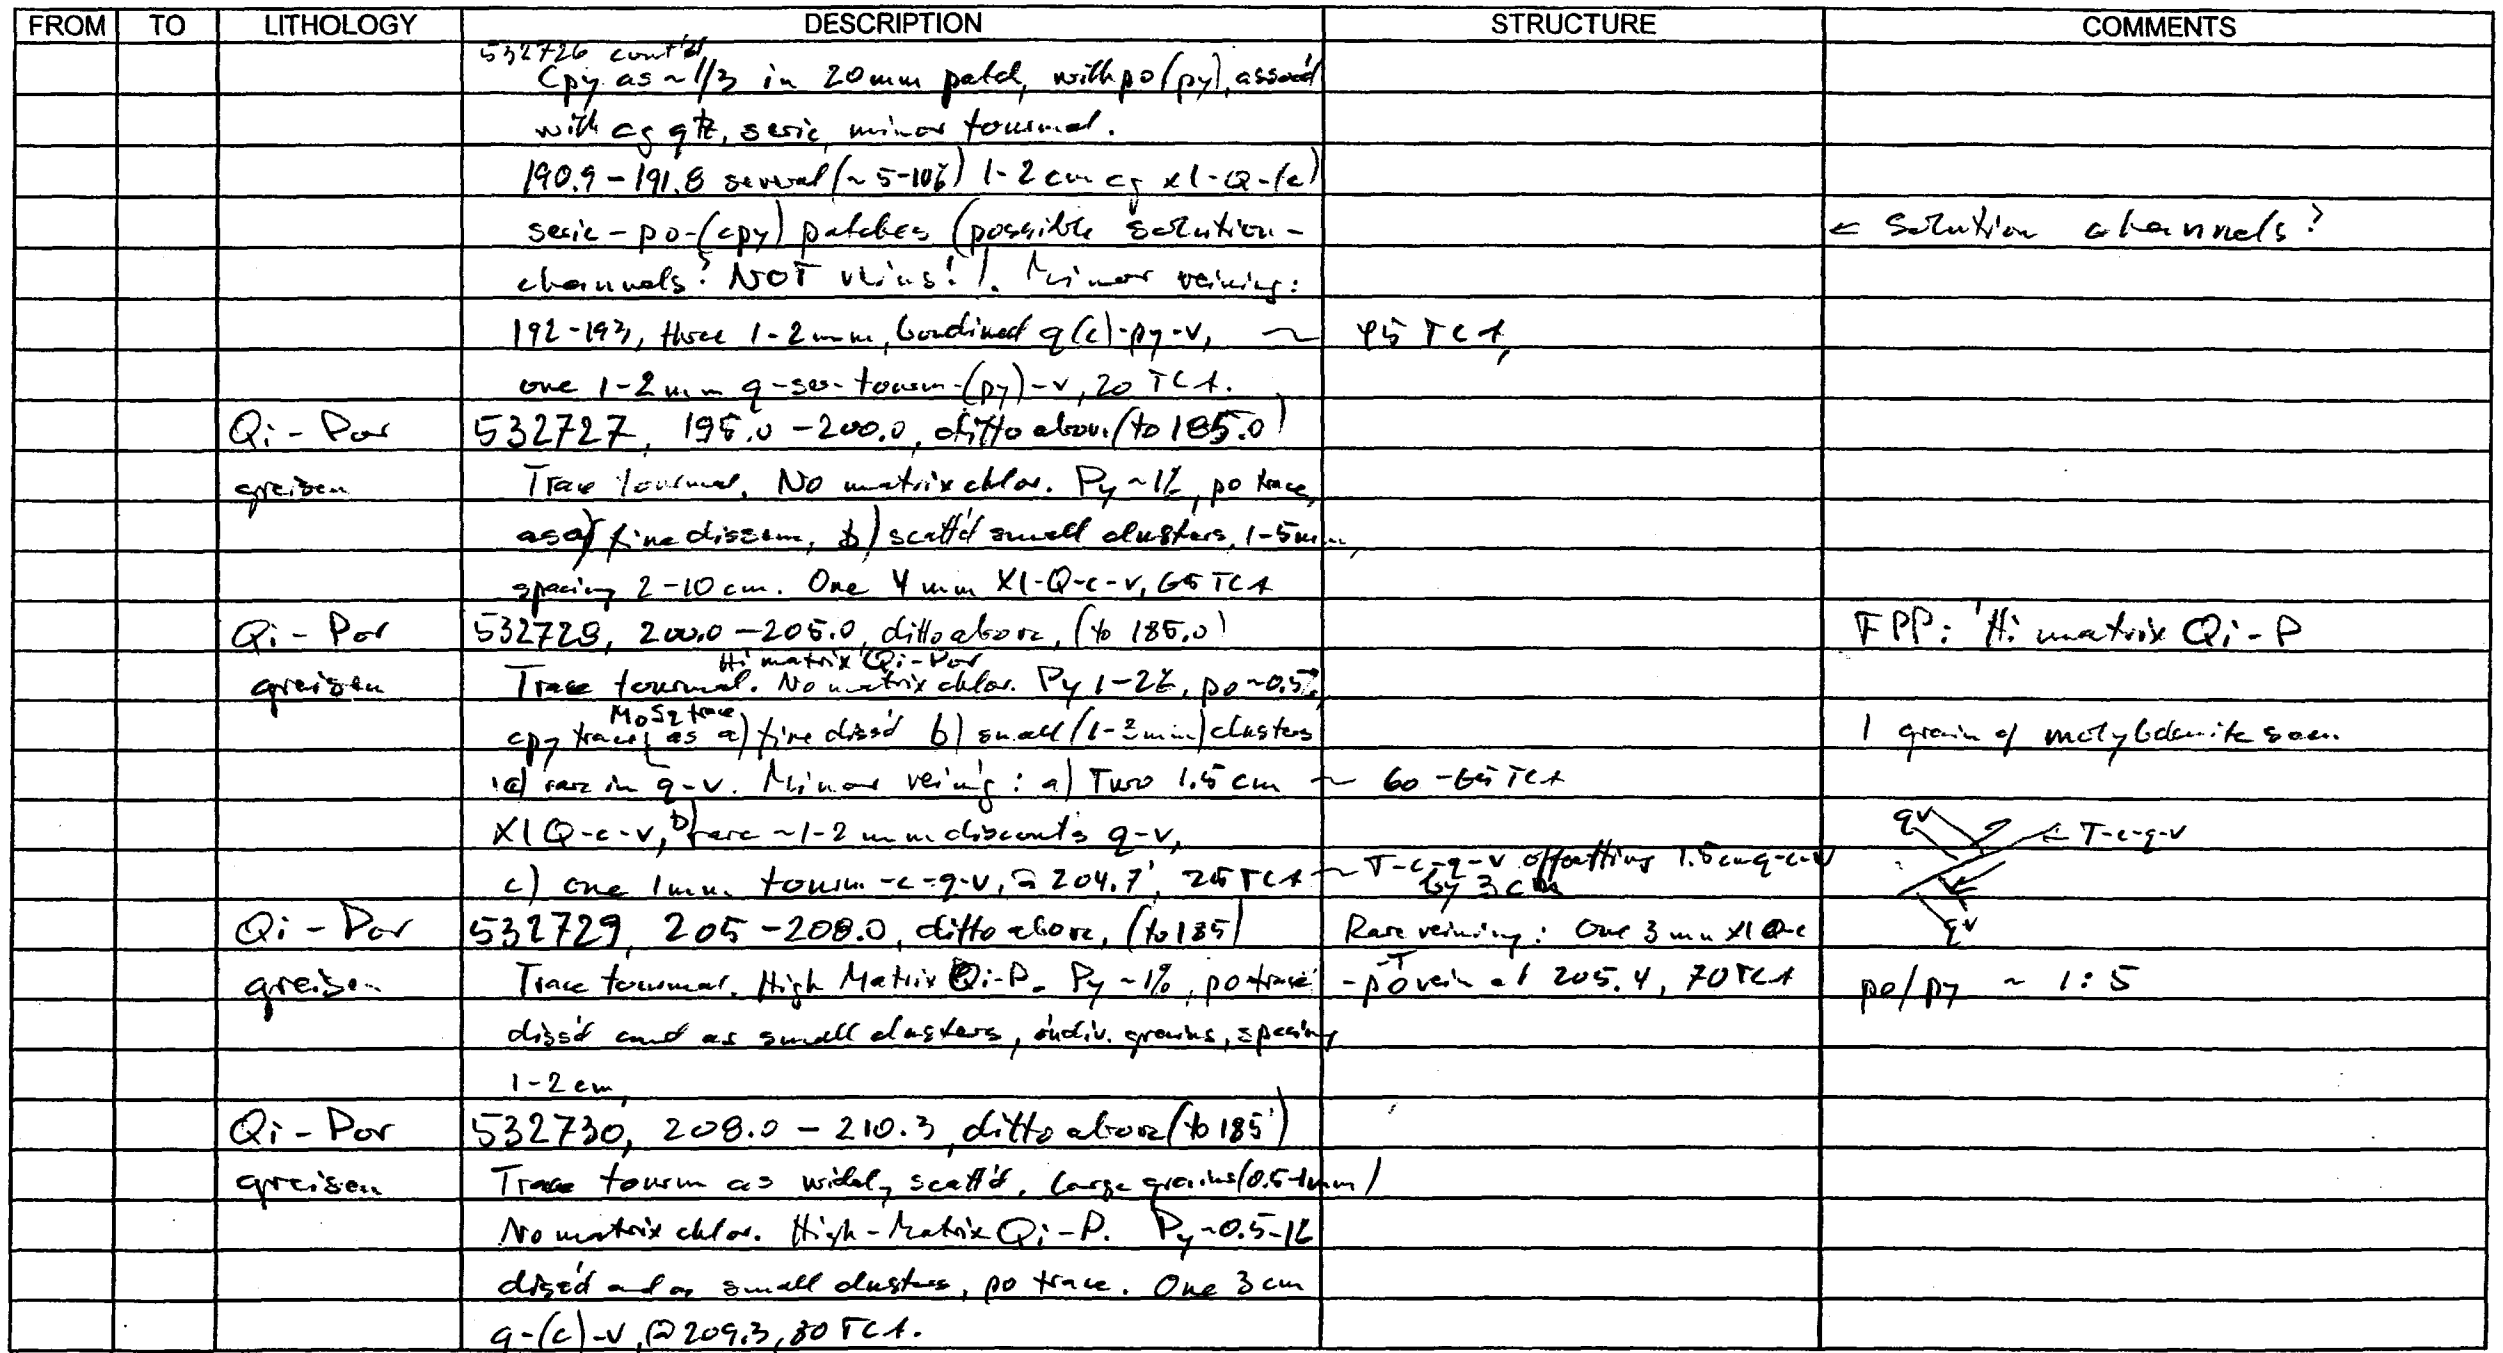 FROM TO LITHOLOGY DESCRIPTION STRUCTURE COMMENTS
532726 cont'd
Cpy as ~1/3 in 20mm patch, with po (py), assoc'd
with cg qtz, seric, minor tourmal.
190.9 - 191.8 several (~5-10%) 1-2 cm cg xl-Q-(c)
seric - po-(cpy) patches (possible solution- ← Solution channels?
channels? NOT veins!). Minor veining:
192-193, three 1-2mm, boudined q(c)-py-v, ~ 45 TCA,
one 1-2mm q-ser-tourm-(py)-v, 20 TCA.
Qi-Por 532727, 195.0 - 200.0, ditto above (to 185.0)
greisen Trace tourmal. No matrix chlor. Py ~1%, po trace,
as a) fine dissem, b) scatt'd small clusters, 1-5mm,
spacing 2-10 cm. One 4 mm Xl-Q-c-v, 65 TCA
Qi-Por 532728, 200.0 - 205.0, ditto above, (to 185.0) FPP: Hi matrix Qi-P
Hi matrix Qi-Por
greisen Trace tourmal. No matrix chlor. Py 1-2%, po ~0.5%,
MoS2 trace
cpy trace, as a) fine diss'd b) small (1-2mm) clusters 1 grain of molybdenite seen.
c) rare in q-v. Minor veining: a) Two 1.5 cm ~ 60-65 TCA
Xl Q-c-v, b) rare ~1-2 mm discont's q-v, qv ← T-c-q-v
c) one 1mm tourm-c-q-v, @ 204.7', 25 TCA ~ T-c-q-v offsetting 1.5cm q-c-v
by 3 cm
Qi-Por 532729, 205 - 208.0, ditto above, (to 185) Rare veining: One 3 mm xl Q-c qv
greisen Trace tourmal. High Matrix Qi-P. Py ~1%, po trace -T-po vein at 205.4, 70 TCA po/py ~ 1:5
diss'd and as small clusters, indiv. grains, spacing
1-2 cm,
Qi-Por 532730, 208.0 - 210.3, ditto above (to 185')
greisen Trace tourm as widely scatt'd, large grains (0.5-1mm)
No matrix chlor. High-Matrix Qi-P. Py ~0.5-1%
diss'd and as small clusters, po trace. One 3 cm
q-(c)-v, @ 209.3, 80 TCA.